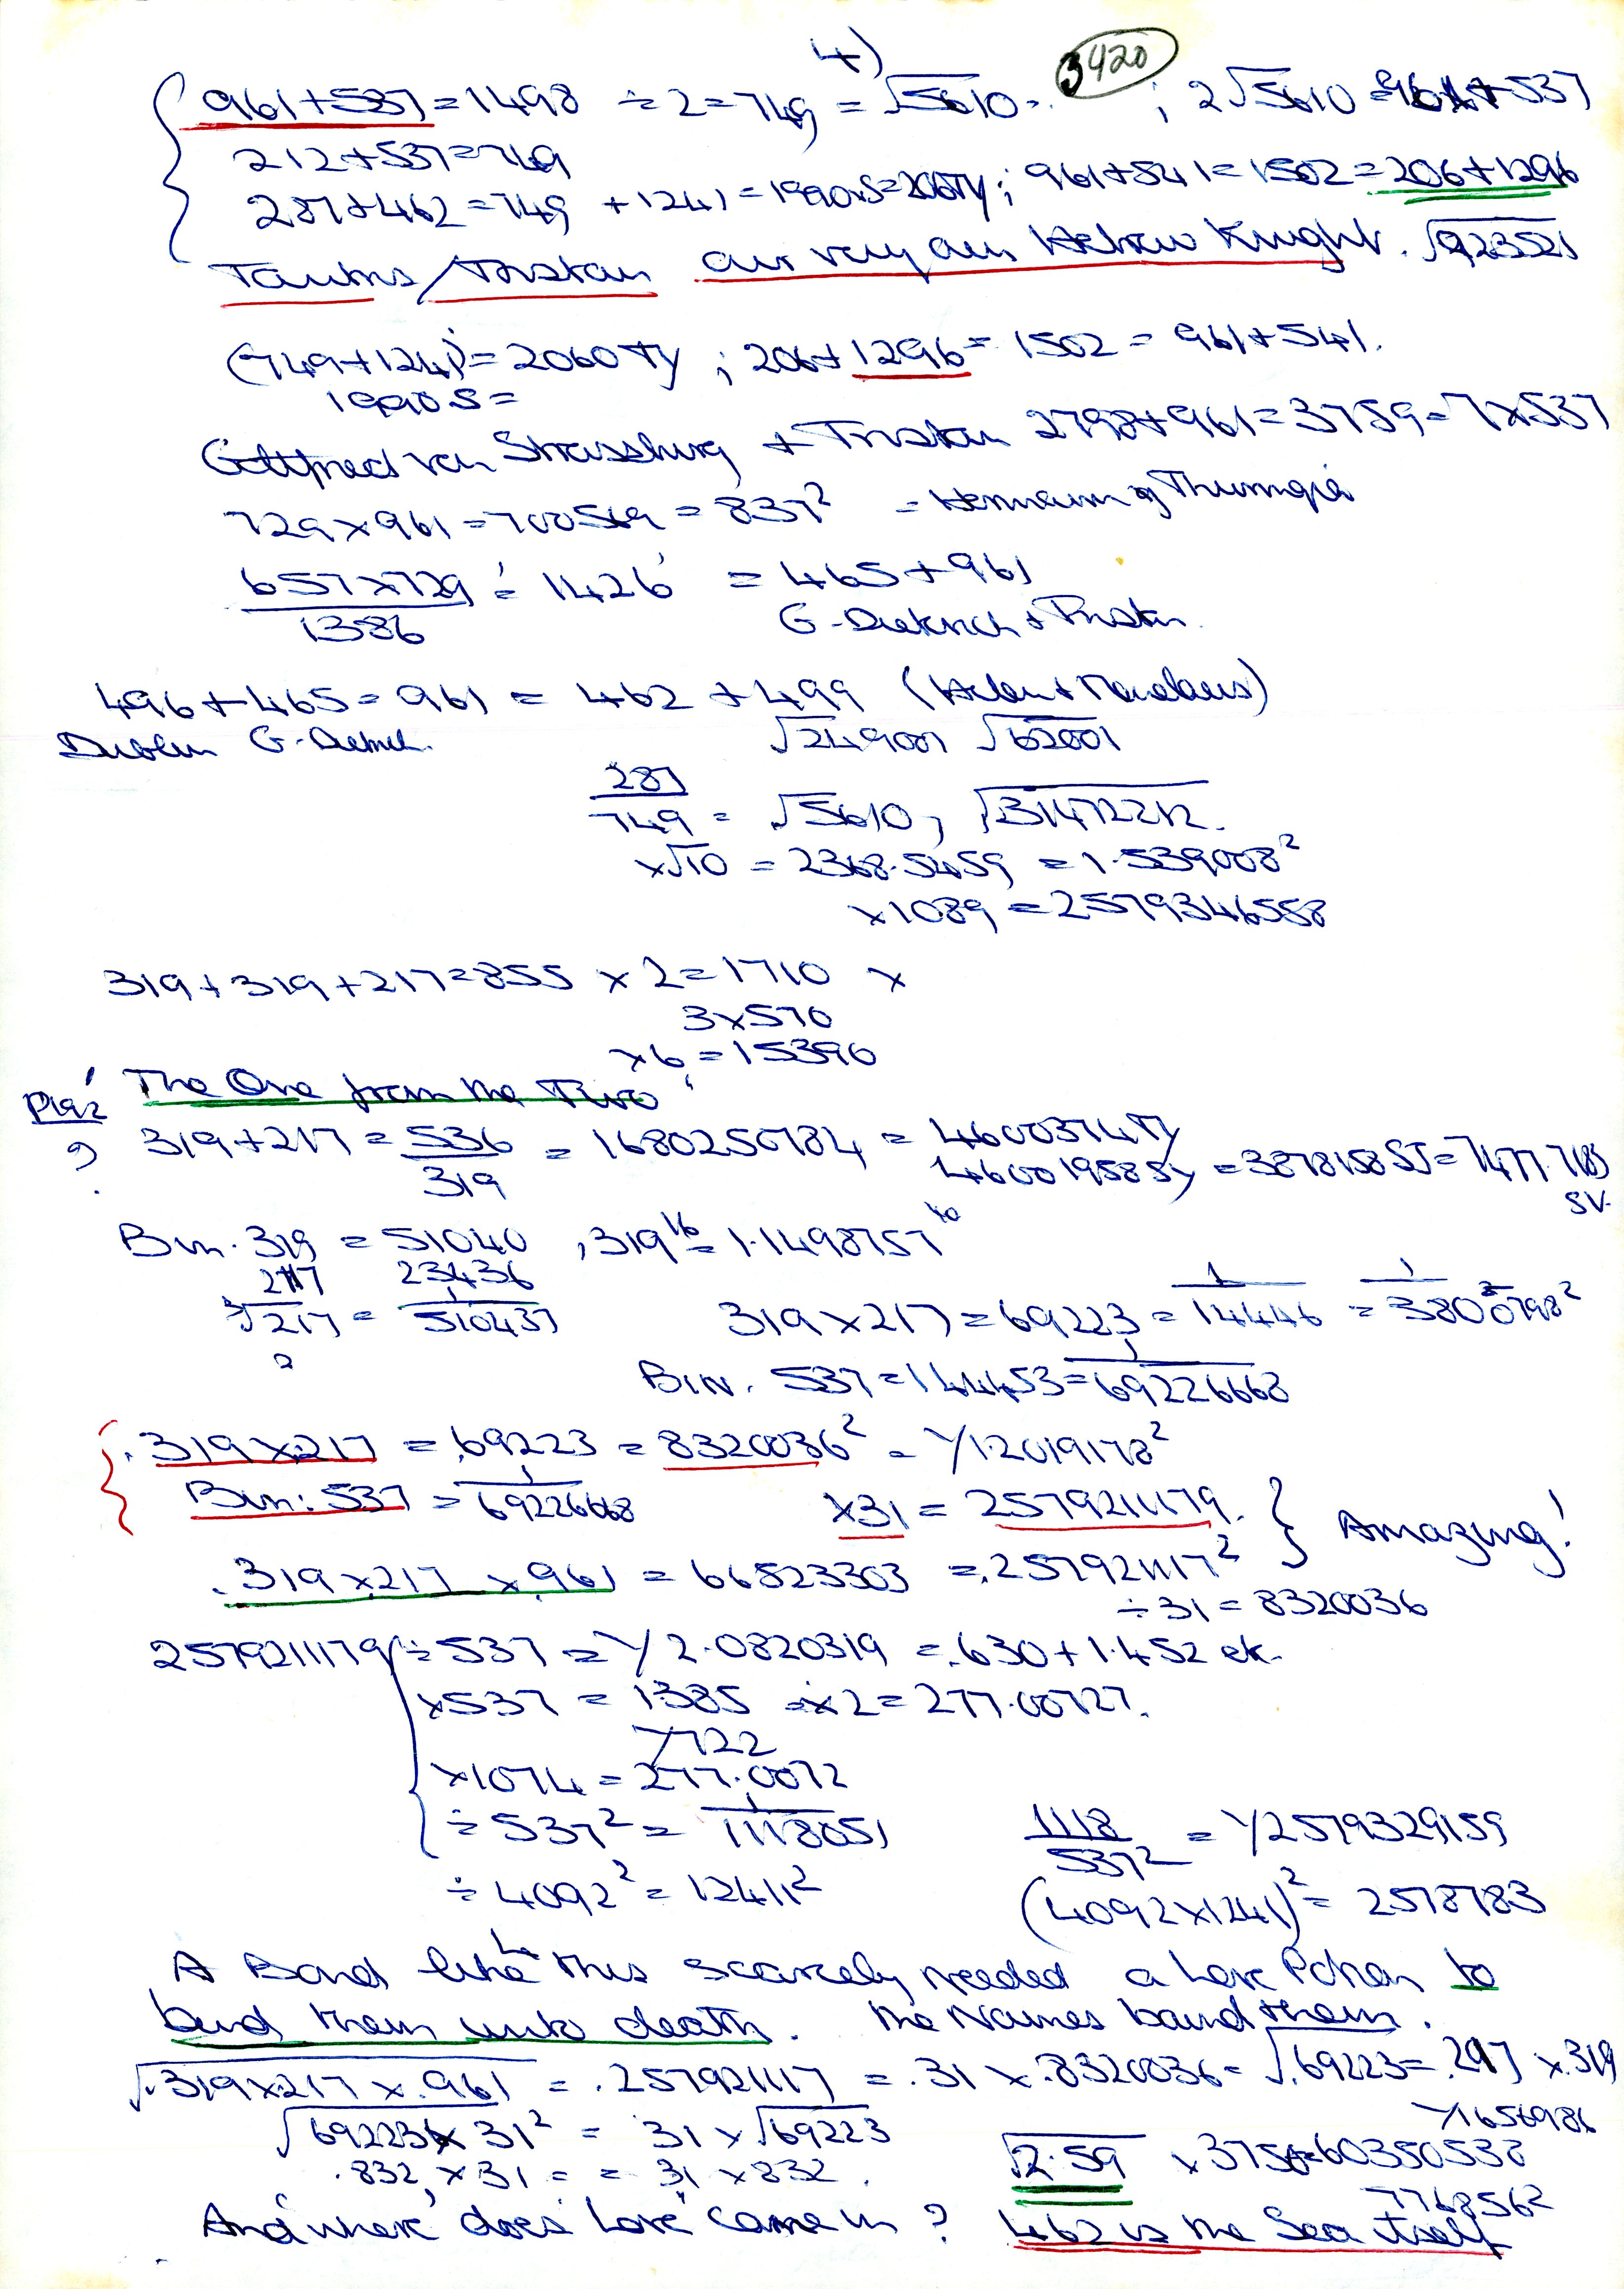 4)
3420
961+537=1498 ÷2=749=√5610- ; 2√5610=961+537
212+537=749
287+462=749 +1241=1990.S=2060Ty; 961+541=1502=206+1296
/Tristan our very own Hebrew Knight. √923521
(749+1241)=2060Ty ; 206+1296=1502=961+541.
1990S=
Gottfried von Strassburg + Tristan 2798+961=3759=7x537
729x961=700569=837² =Hermann of Thuringia
657x729 ÷ 1426 = 465+961
1386 G-Dietrich + Tristan
496+465=961 = 462 +499 (Helen + Menelaus)
Dublin G-Dietrich. √249001 √62001
287
749 = √5610, √31472212.
x√10 = 2368.5459 = 1.539008²
x1089=2579346558
319+319+217=855 x2=1710 x
3x570
x6=15390
'The One from the Two'
?
319+217=536 = 1680250784 = 4600374Ty
319 460019585y =3878158SJ=7477.7183
SV.
Bin. 319 = 51040 , 319¹⁶=1.1498757⁴⁰
217 23436
∛217 = 1/510437 319x217=69223=1/14446 = 1/38005798²
?
Bin. 537=144453=1/69226668
.319x.217 = .69223=8320036² = 1/1.2019178²
Bin: 537 = 1/69226668 x31=2579211179. } Amazing!
.319x.217 x.961=66523303 =.257921117²
÷31=8320036
2579211179÷537=1/2.0820319=.630+1.452 etc.
x537=1385 x2=277.00727.
/722
x1074=277.0072
÷537²=1/1118051 1118/537² = 1/2579329159
÷4092²=12411² (4092x1241)²=2578783
A Bond like this scarcely needed a Love Potion to
bind them unto death. The Names bound them.
√.319x.217x.961 = .257921117=.31x.8320036=√.69223=.217x.319
√69223x31² = 31x√69223 1/1658986
.832, x31 = = 31 x832. √2.59 x3758=60350538
776856²
And 'where' does 'Love' come in? 462 is the Sea itself